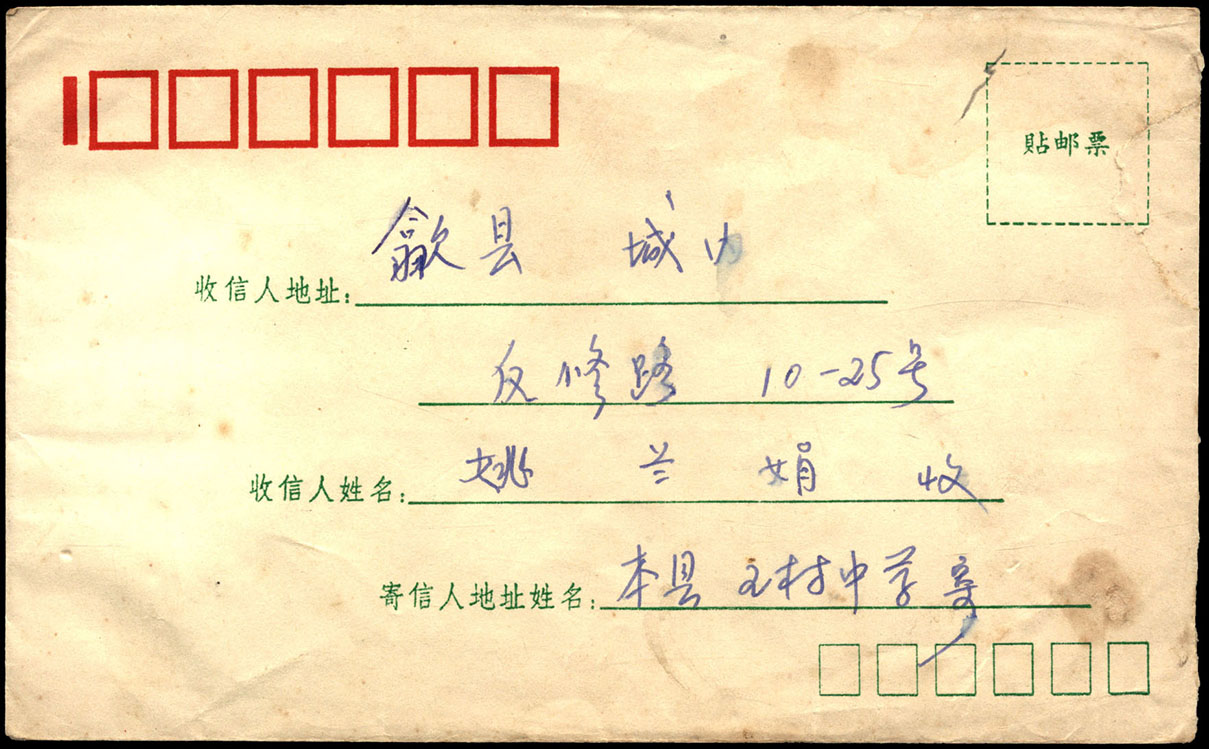 貼邮票
收信人地址: 歙县 城内
反修路 10-25号
收信人姓名: 姚兰娟 收
寄信人地址姓名: 本县 王村中学寄